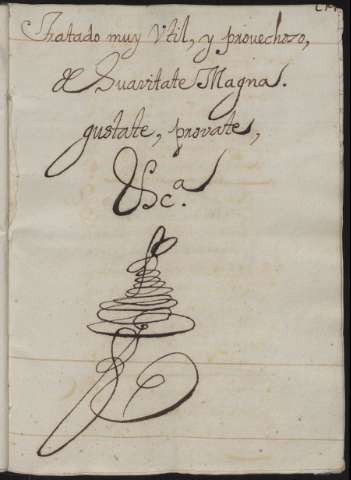 Tratado muy Vtil, y provechozo,
& Suavitate Magna.
gustate, provate,
&c.a